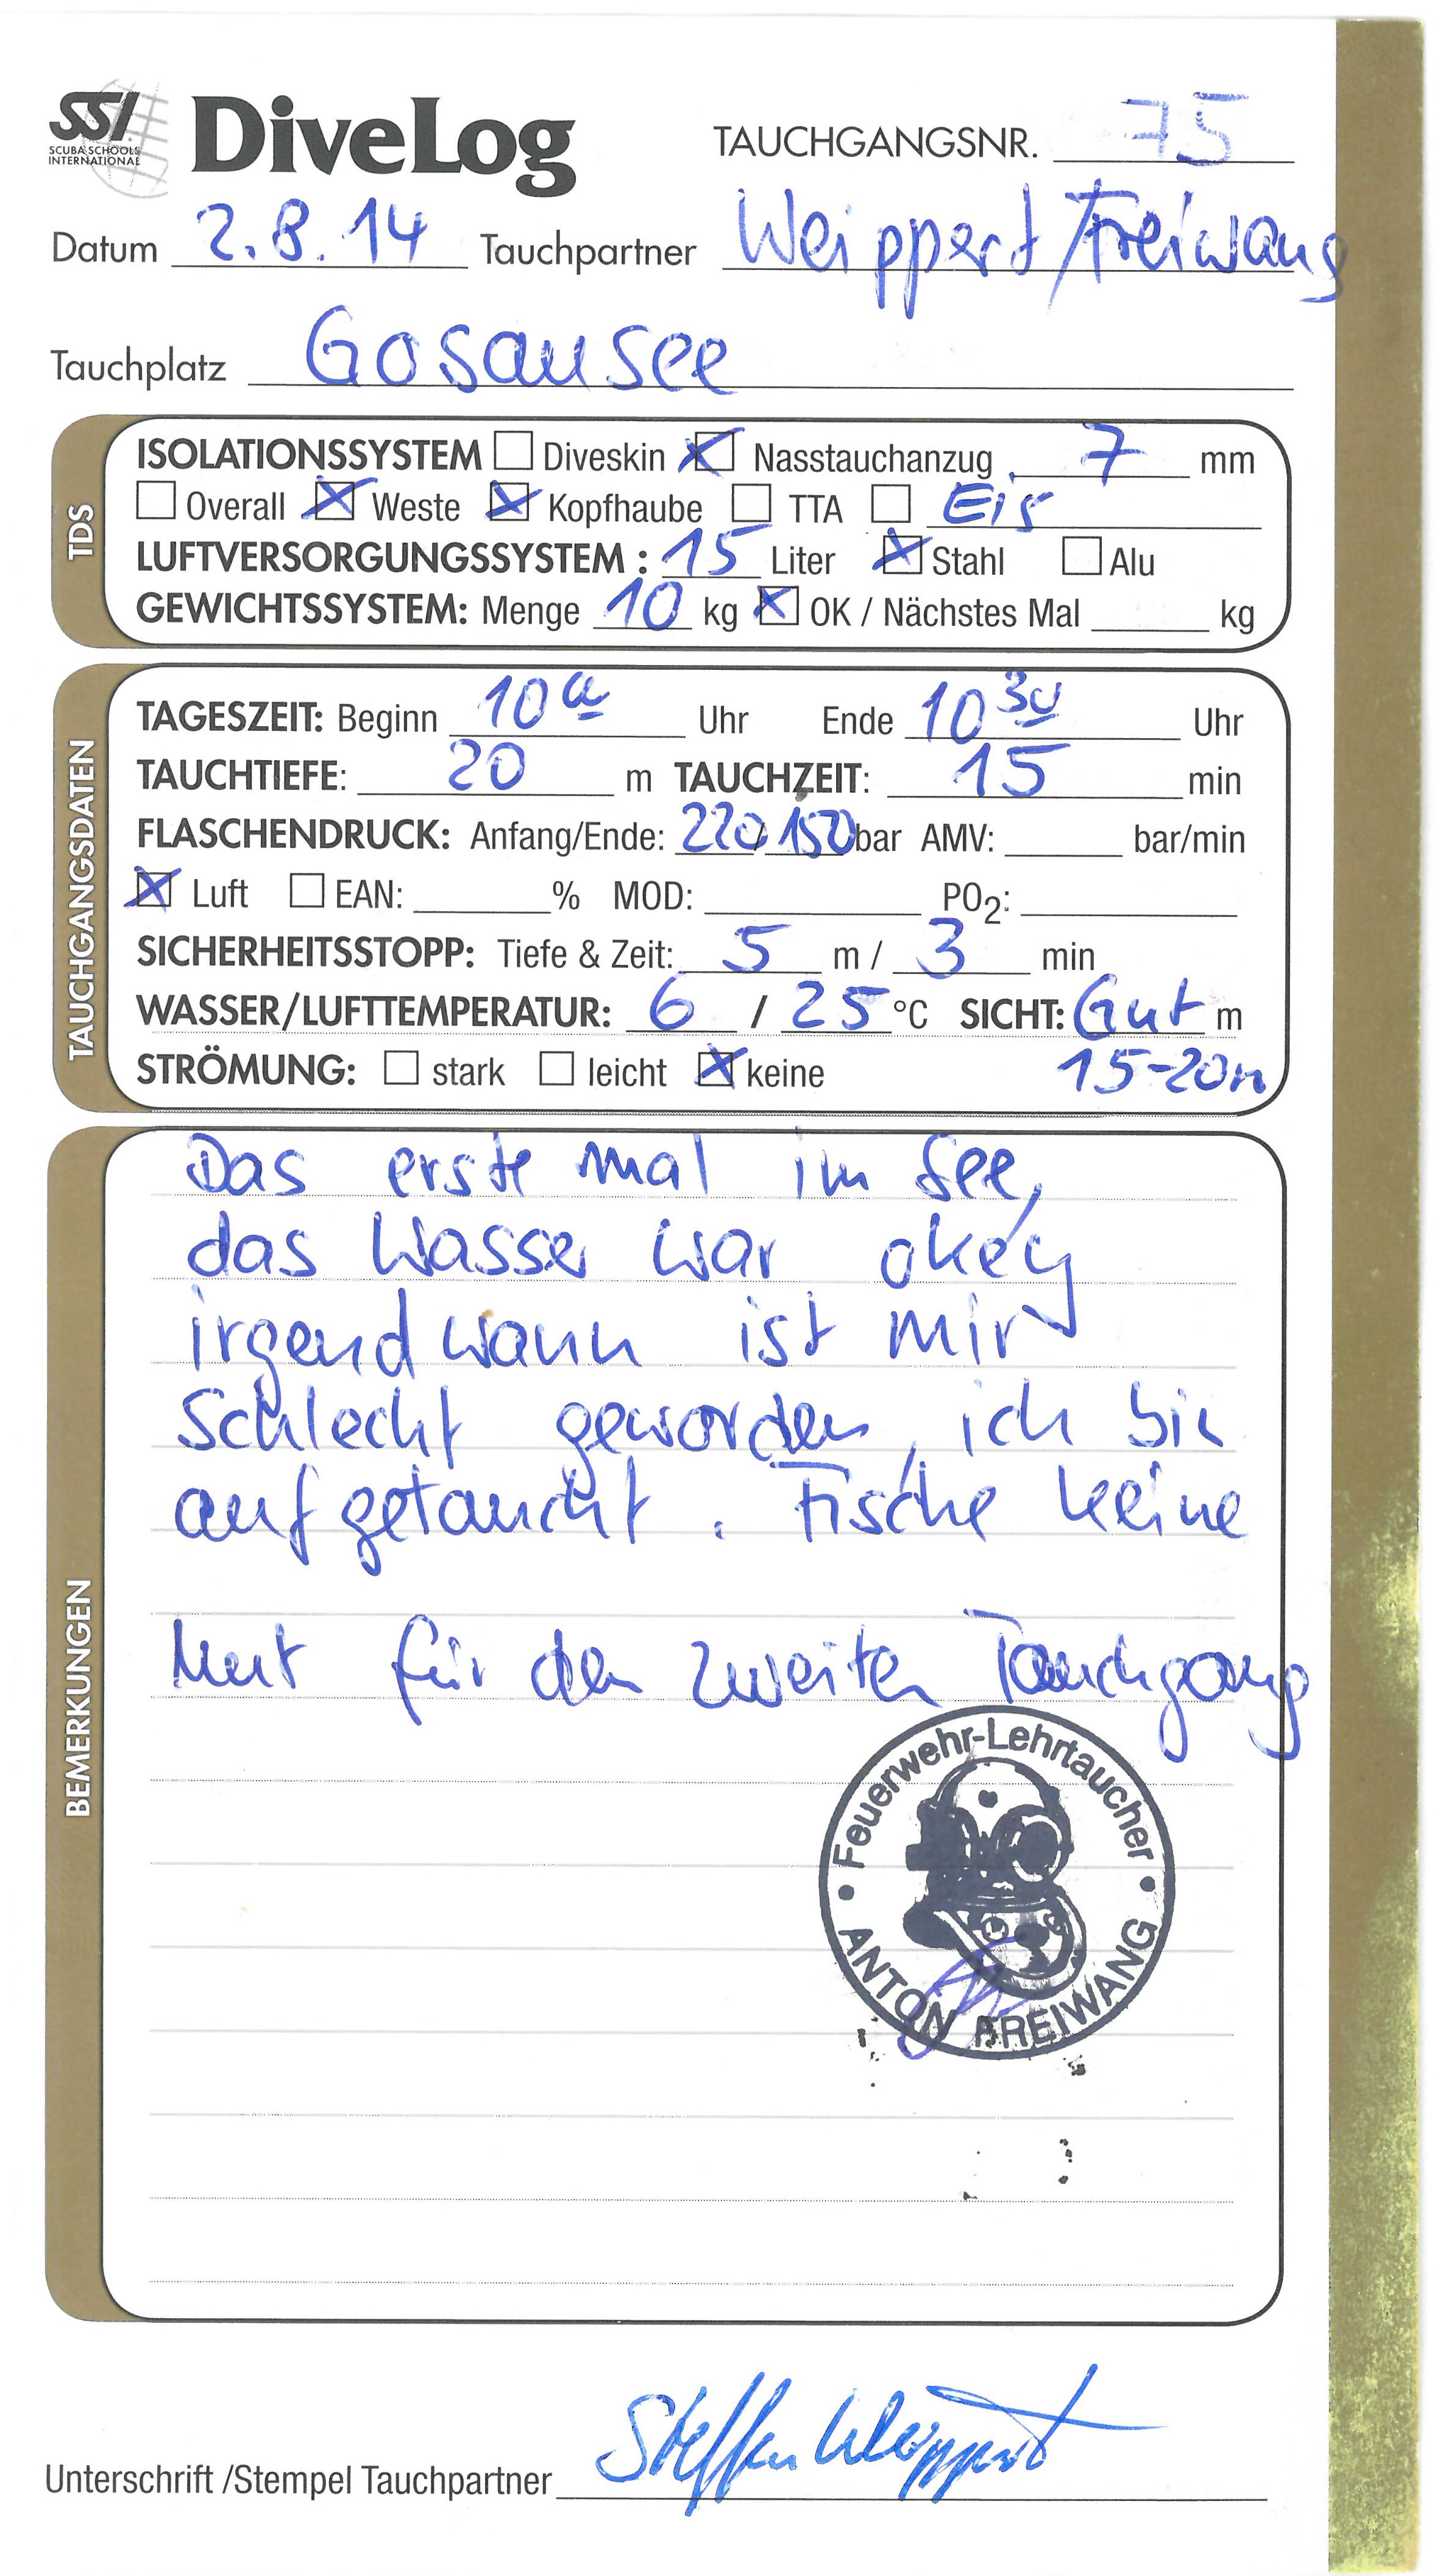 SSI
SCUBA SCHOOLS
INTERNATIONAL
DiveLog
TAUCHGANGSNR. 75
Datum 2.8.14 Tauchpartner Weippert/Freiwang
Tauchplatz Gosausee
TDS
ISOLATIONSSYSTEM Diveskin Nasstauchanzug 7 mm
Overall Weste Kopfhaube TTA Eis
LUFTVERSORGUNGSSYSTEM : 15 Liter Stahl Alu
GEWICHTSSYSTEM: Menge 10 kg OK / Nächstes Mal kg
TAUCHGANGSDATEN
TAGESZEIT: Beginn 10 00 Uhr Ende 10 30 Uhr
TAUCHTIEFE: 20 m TAUCHZEIT: 15 min
FLASCHENDRUCK: Anfang/Ende: 220/150 bar AMV: bar/min
Luft EAN: % MOD: PO2:
SICHERHEITSSTOPP: Tiefe & Zeit: 5 m / 3 min
WASSER/LUFTTEMPERATUR: 6 / 25 °C SICHT: Gut m
STRÖMUNG: stark leicht keine 15-20m
BEMERKUNGEN
Das erste mal im See,
das Wasser war okey
irgendwann ist mir
Schlecht geworden, ich bin
aufgetaucht. Fische keine
Mut für den zweiten Tauchgang
Feuerwehr-Lehrtaucher
ANTON FREIWANG
Unterschrift /Stempel Tauchpartner Steffen Weippert